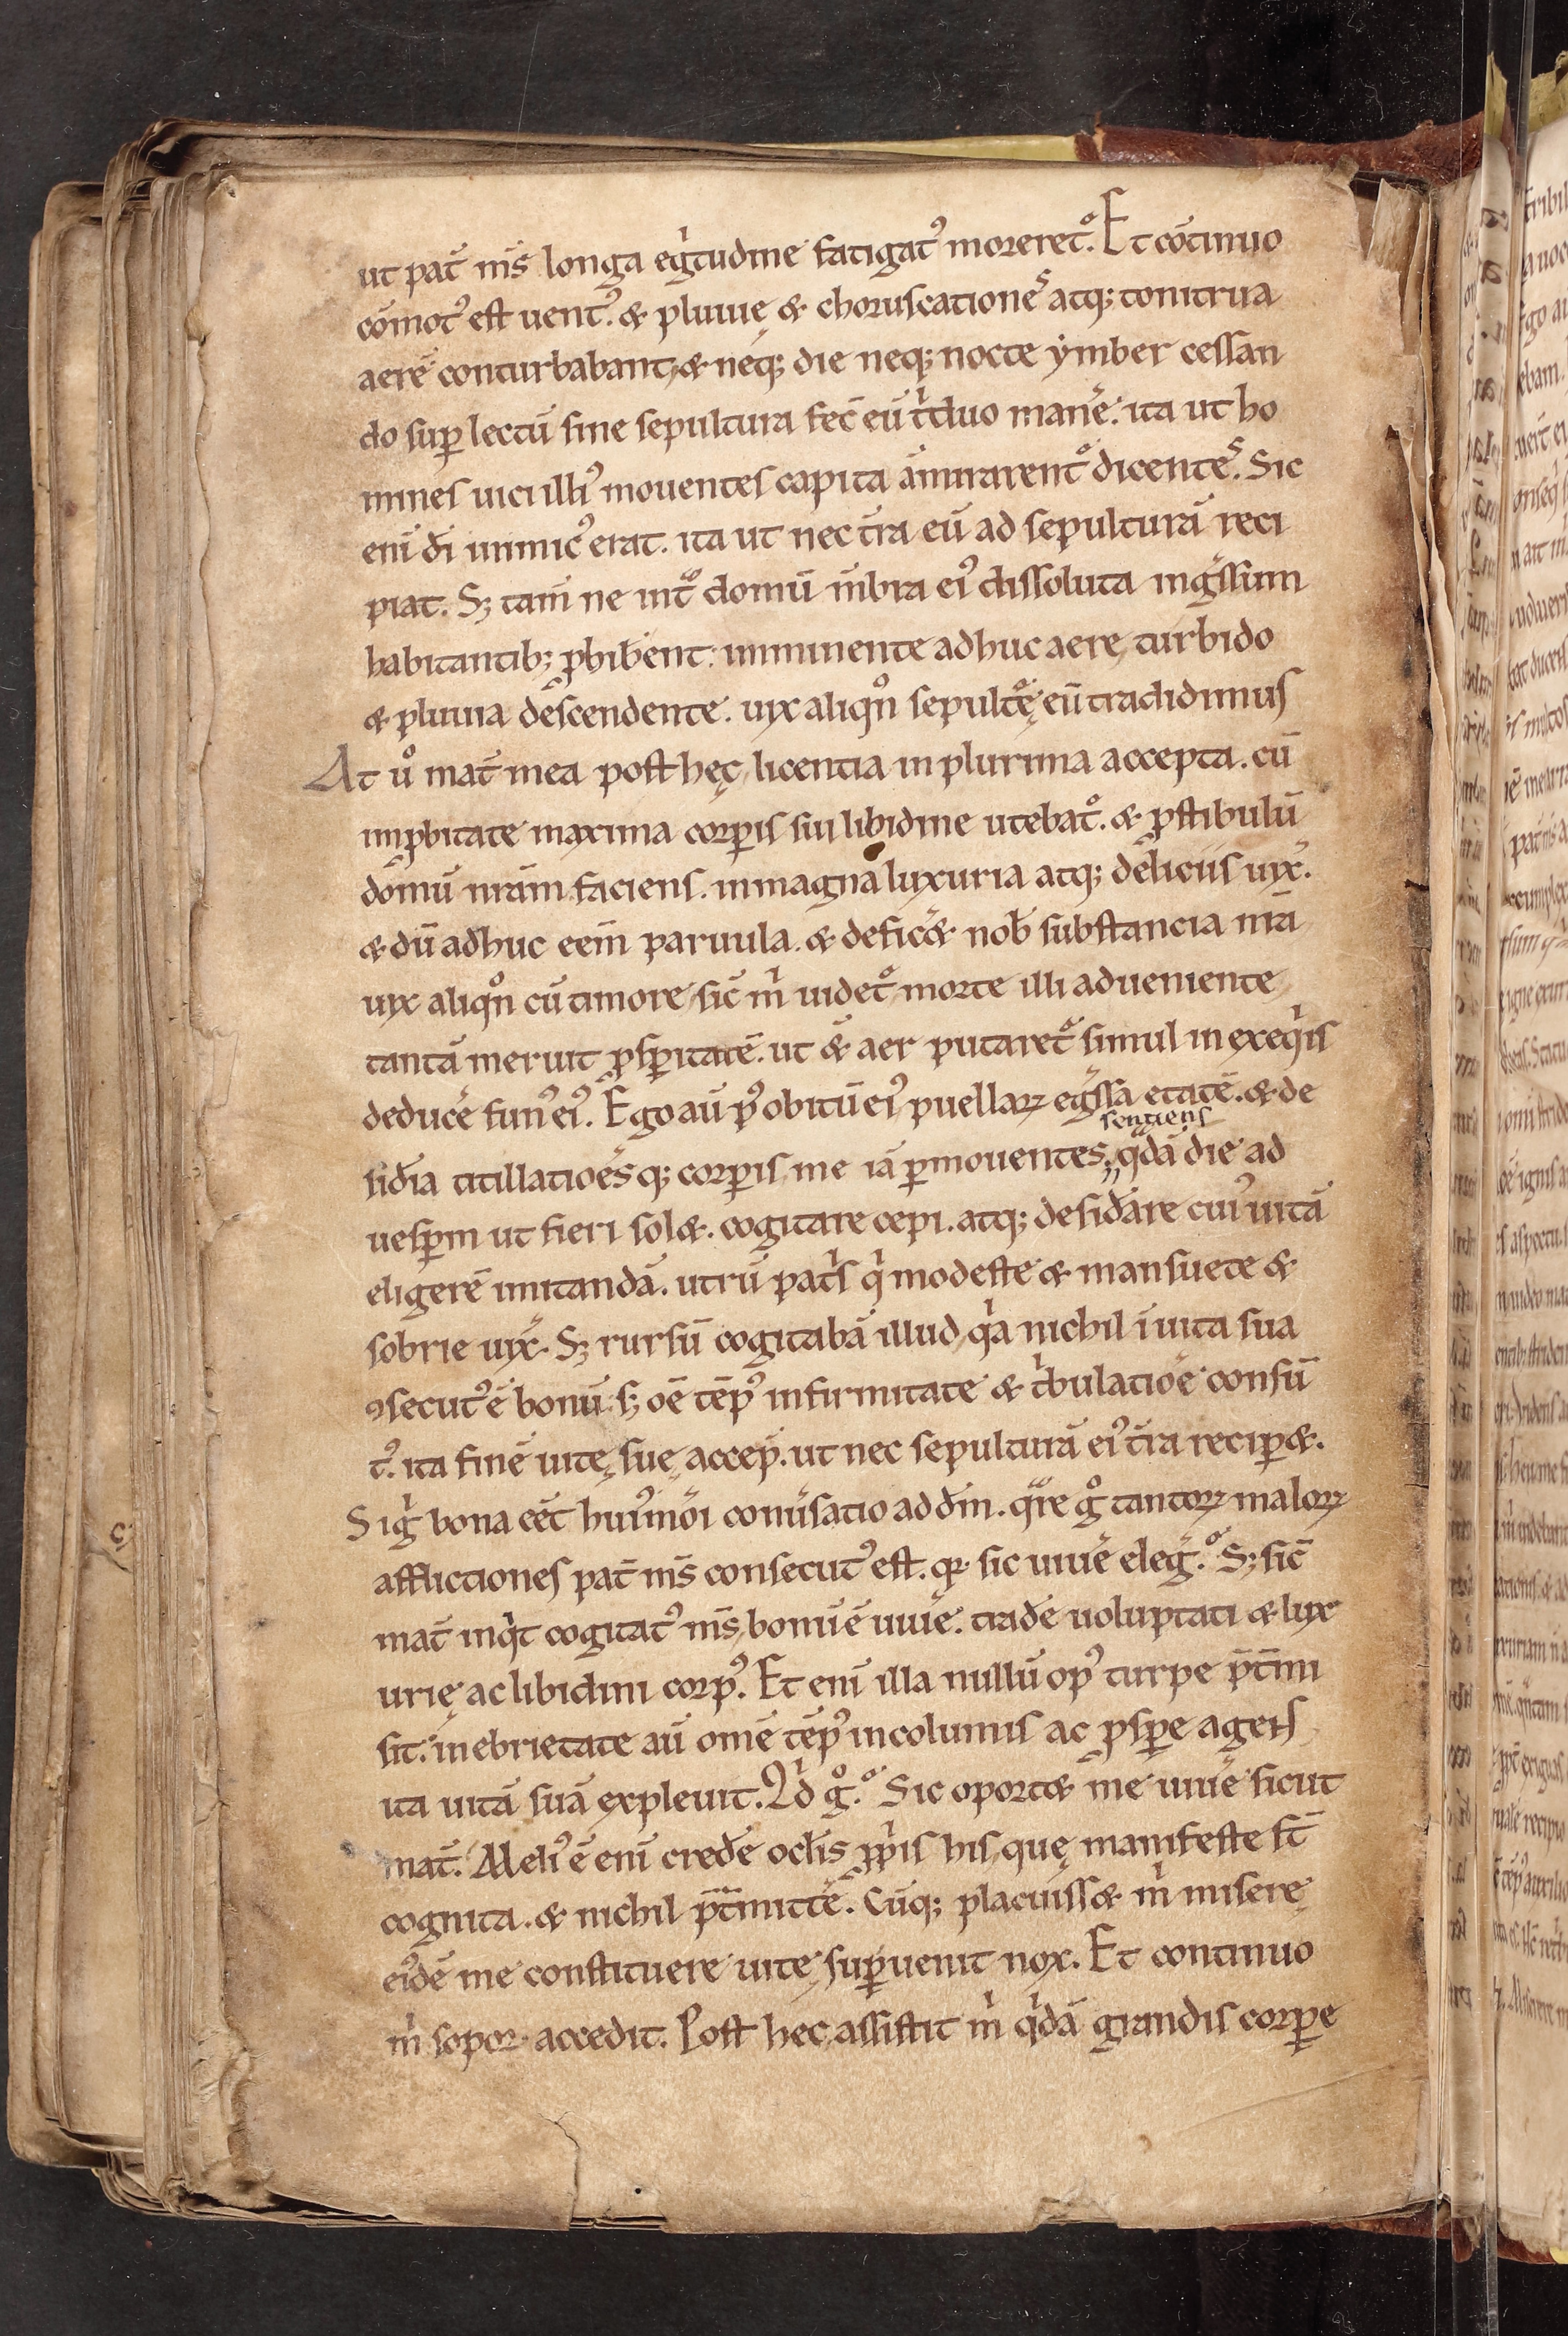 ut pat̄ nr̄s longa egͥtudine fatigatꝰ morereť. Et cōtinuo
cōmotꝰ est uentꝰ. & pluuię & choruscationes atq; tonitrua
aerē conturbabant, & neq; die neq; nocte ẏmber cessan
do suꝑ lectū sine sepultura fec̄ eū tͥduo manē. ita ut ho
mines uici illiꝰ mouentes capita āmirarent᷑ dicentes. Sic
eni dī inimicꝰ erat. ita ut nec t̄ra eū ad sepulturā reci
piat. Sꝫ tam̄ ne int᷑ domū m̄bra eiꝰ dissoluta ingͤssum
habitantibꝫ ꝓhib̄ent: imminente adhuc aere turbido
& pluuia descendente. uix aliqn̊ sepultę eū tradidimus
At ů mat̄ mea post hęc, licentia in plurima accepta. cū
imꝓbitate maxima corꝑis sui libidine utebat᷑. & ꝓstibulū
domū nr̄am faciens. in magna luxuria atq; deliciis uix̄.
& dū adhuc eem̄ paruula. & defic& nob̄ substancia nr̄a
uix aliqn̊ cū timore, sic̄ m̄ uidet᷑ morte illi adueniente,
tantā meruit ꝓsꝑitatē. ut & aer putaret᷑ simul in exeqͥis
deducē funꝰ eiꝰ. Ego aū pꝰ obitū eiꝰ puellaꝝ egͤssa etatē. & de
sentiens
sid̄ia titillatioēsq; corꝑis me iā ꝑmouentes,, qͣdā die ad
uesꝑm ut fieri sol&. cogitare cepi. atq; desid̄are cuiꝰ uitā
eligerē imitandā. utrū patͥs qͥ modeste & mansuete &
sobrie uix̄. Sꝫ rursū cogitabā illud, qͥa nichil ī uita sua
ꝯsecutꝰ ē bonū. sꝫ oē tēpꝰ infirmitate & tͥbulatioē consū
tꝰ. ita finē uitę suę accep̄. ut nec sepulturā eiꝰ t̄ra reciꝑ&.
Si gͥ bona eēt huiꝰmōi conūsatio ad dm̄. qͣre gͦ tantoꝝ maloꝝ
afflictiones pat̄ nr̄s consecutꝰ est. qꝛ sic uiuē eleḡ.ͦ Sꝫ sic̄
mat̄ inqͥt cogitatꝰ nr̄s, bonū ē uiuē. tradē uoluptati & lux
urię ac libidini corpꝰ. Et eni illa nullū opꝰ turpe p̄tmi
sit. in ebrietate aū omē tēpꝰ incolumis ac ꝓsꝑe agens
ita uitā suā expleuit. Qͥd gͦ.ͦ Sic oport& me uiuē sicut
mat̄. Meliꝰ ē eni credē oclis ꝓpͥis his, quę manifeste st̄
cognita. & nichil p̄tmittē. Cūq; placuiss& mͥ misere,
eiꝰdē me constituere uitę, suꝑuenit nox. Et continuo
mͥ sopor accedit. Post hec, assistit mͥ qͥdā grandis corꝑe